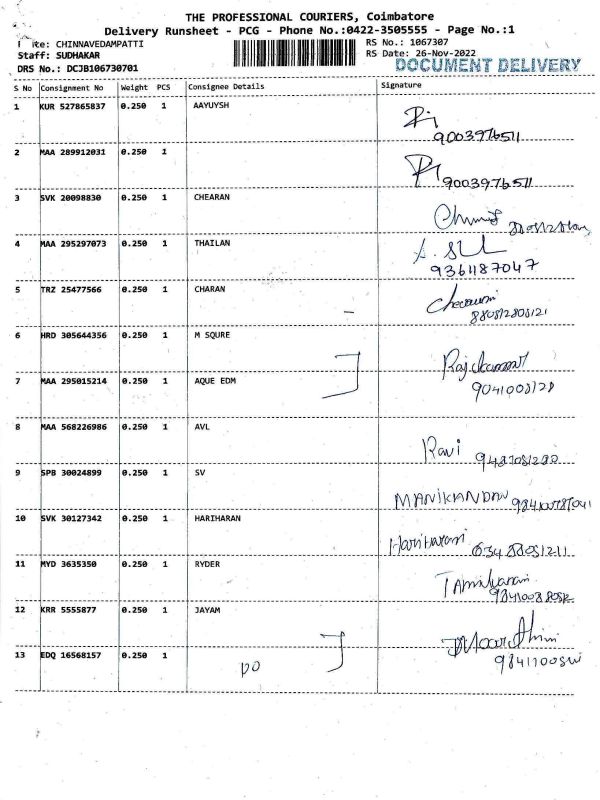 THE PROFESSIONAL COURIERS, Coimbatore
Delivery Runsheet - PCG - Phone No.:0422-3505555 - Page No.:1
CHINNAVEDAMPATTI
RS No.: 1067307
Staff: SUDHAKAR
RS Date: 26-Nov-2022
DRS No.: DCJB106730701
DOCUMENT DELIVERY
S No Consignment No Weight PCS Consignee Details Signature
1 KUR 527865837 0.250 1 AAYUYSH
9003976511
2 MAA 289912031 0.250 1
9003976511
3 SVK 20098830 0.250 1 CHEARAN
4 MAA 295297073 0.250 1 THAILAN
9361187047
5 TRZ 25477566 0.250 1 CHARAN
6 HRD 305644356 0.250 1 M SQURE
7 MAA 295015214 0.250 1 AQUE EDM
8 MAA 568226986 0.250 1 AVL
Ravi
9 SPB 30024899 0.250 1 SV
MANIKANDAN
10 SVK 30127342 0.250 1 HARIHARAN
Hariharan
11 MYD 3635350 0.250 1 RYDER
12 KRR 5555877 0.250 1 JAYAM
13 EDQ 16568157 0.250 1
DO